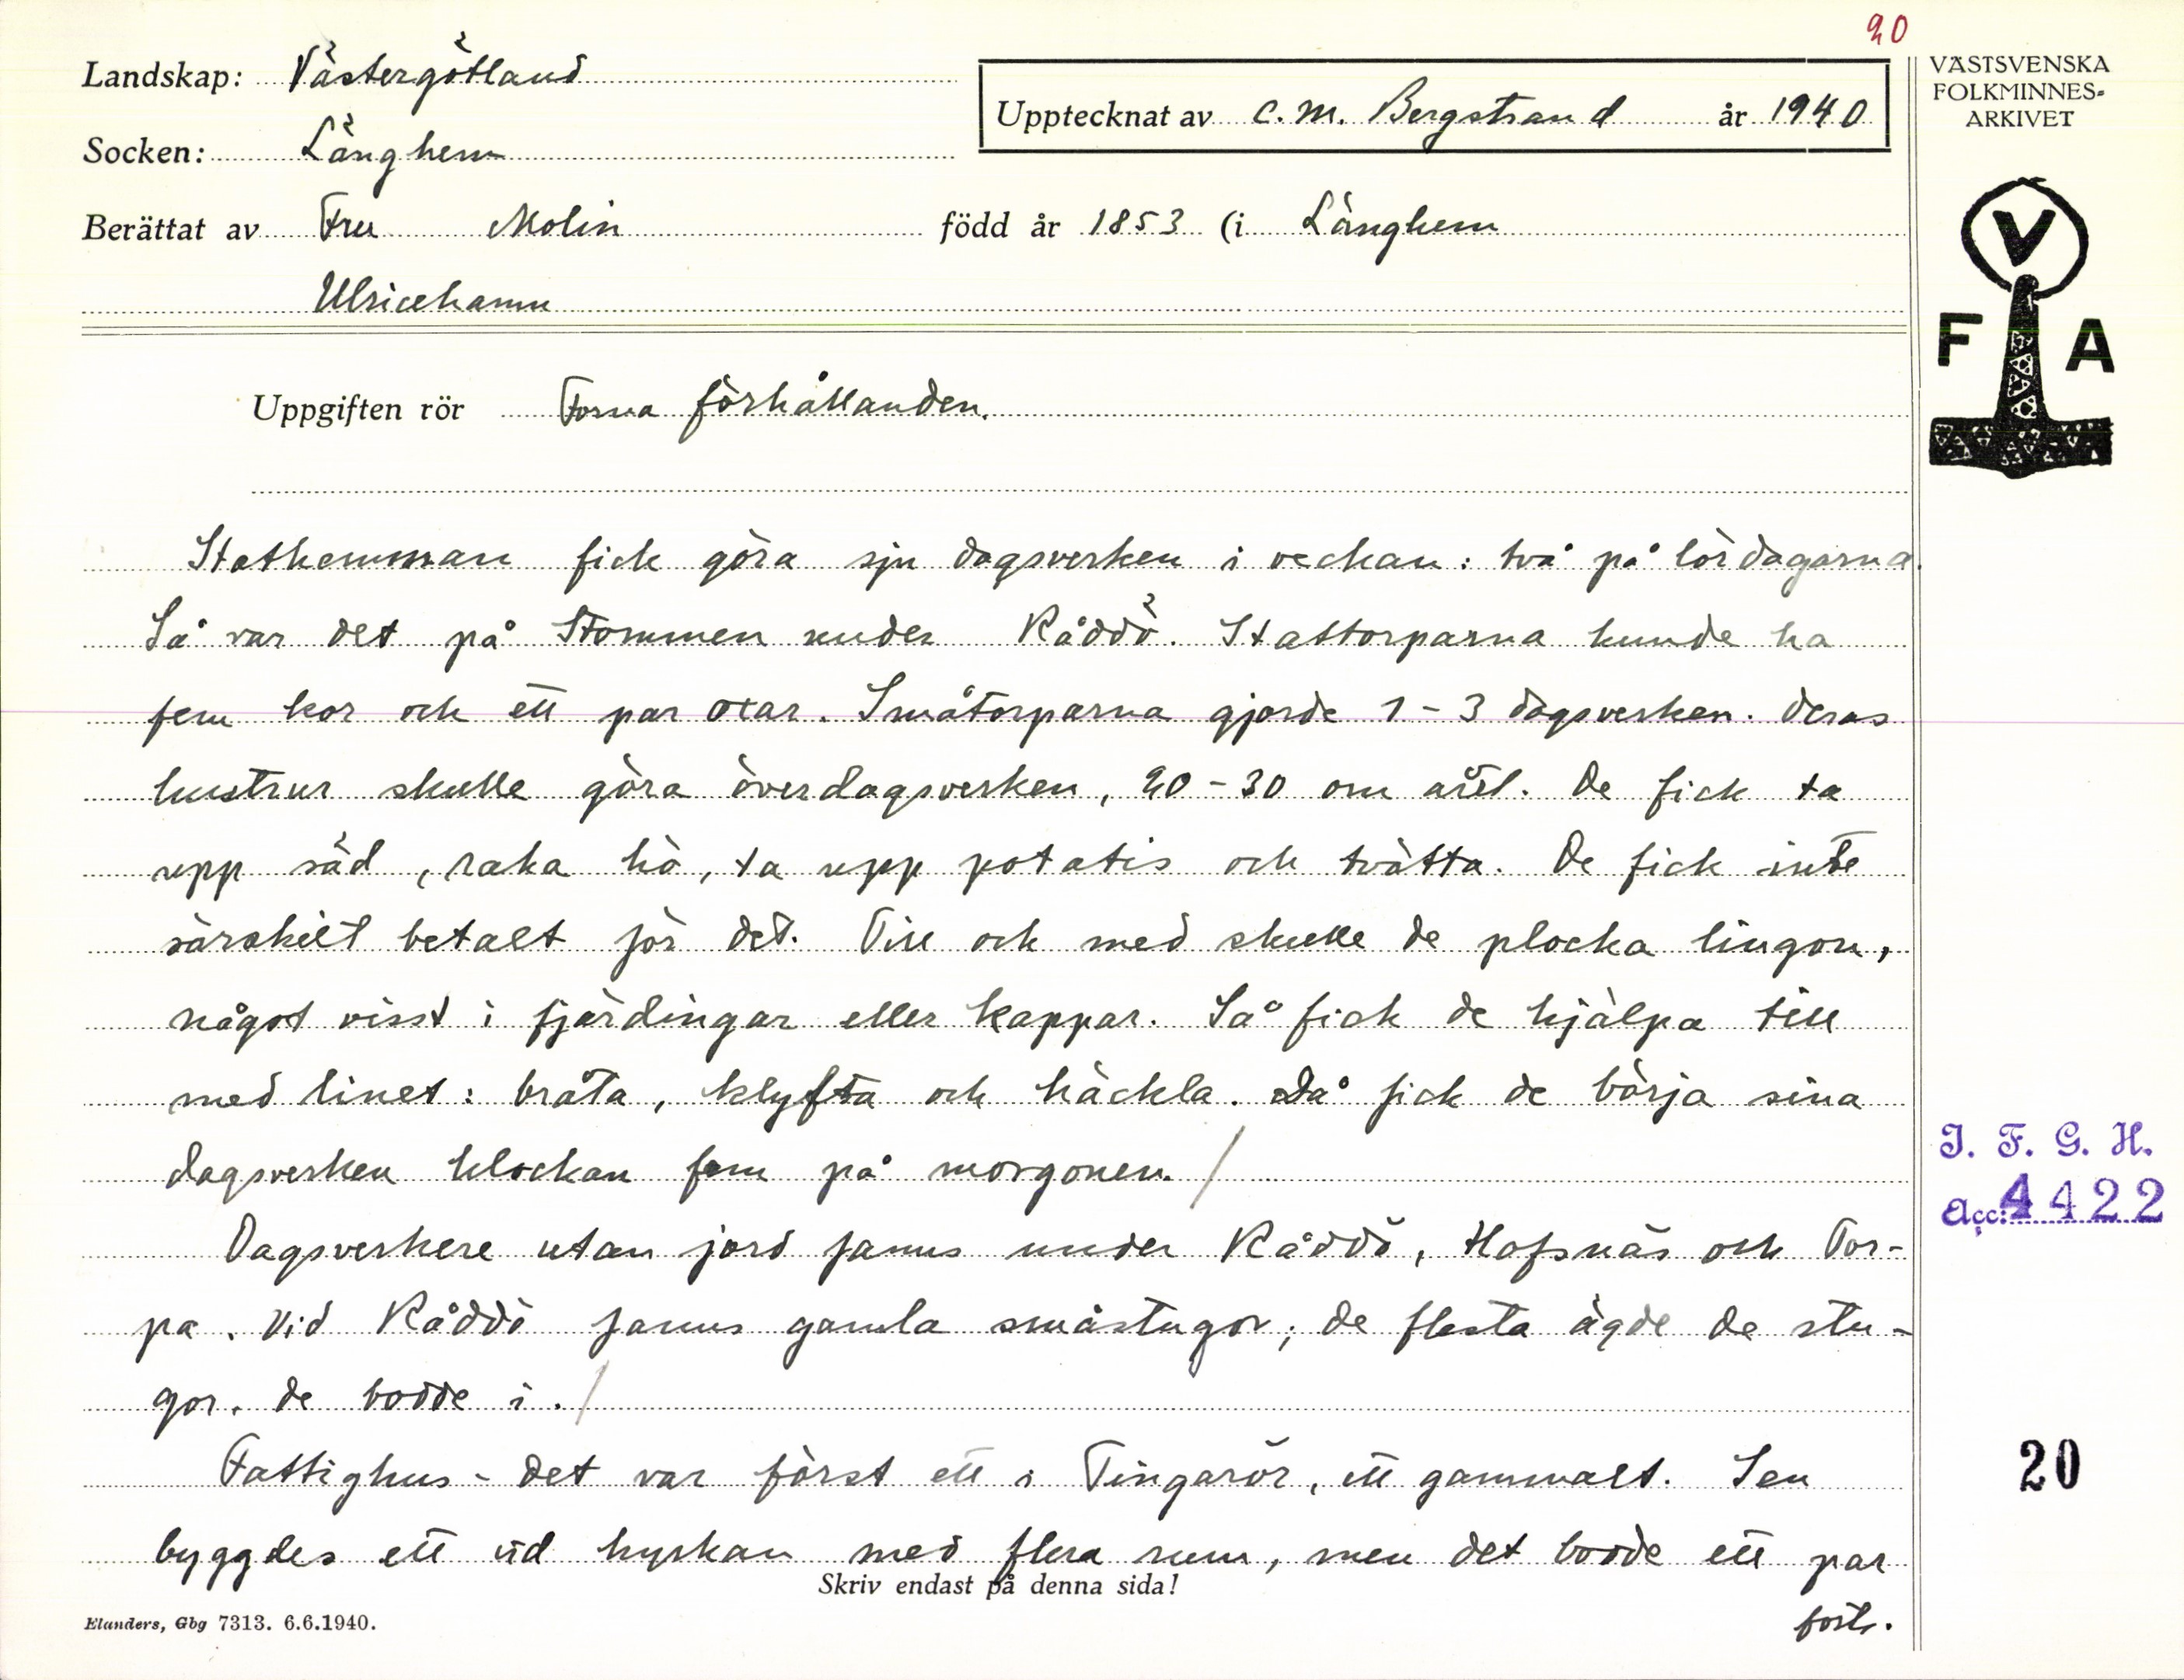 20
Landskap: Västergötland
Upptecknat av C. M. Bergstrand år 1940
VÄSTSVENSKA
FOLKMINNES-
ARKIVET
Socken: Länghem
Berättat av Fru Molin född år 1853 (i Länghem
Ulricehamn
V
F A
Uppgiften rör Forna förhållanden.
Stathemman fick göra sju dagsverken i veckan: två på lördagarna.
Så var det på Stommen under Råddö. Stattorparna kunde ha
fem kor och ett par oxar. Småtorparna gjorde 1-3 dagsverken. Deras
hustrur skulle göra överdagsverken, 20-30 om året. De fick ta
upp säd, raka hö, ta upp potatis och tvätta. De fick inte
särskilt betalt för det. Till och med skulle de plocka lingon,
något visst i fjärdingar eller kappar. Så fick de hjälpa till
med linet: bråta, klyfta och häckla. Då fick de börja sina
dagsverken klockan fem på morgonen. /
Dagsverkere utan jord fanns under Råddö, Hofsnäs och Tor-
pa. Vid Råddö fanns gamla småstugor; de flesta ägde de stu-
gor, de bodde i. /
Fattighus - det var först ett i Tingarör, ett gammalt. Sen
byggdes ett vid kyrkan med flera rum, men det bodde ett par
forts.
Skriv endast på denna sida!
Elanders, Gbg 7313. 6.6.1940.
I. F. G. H.
Acc: 4422
20